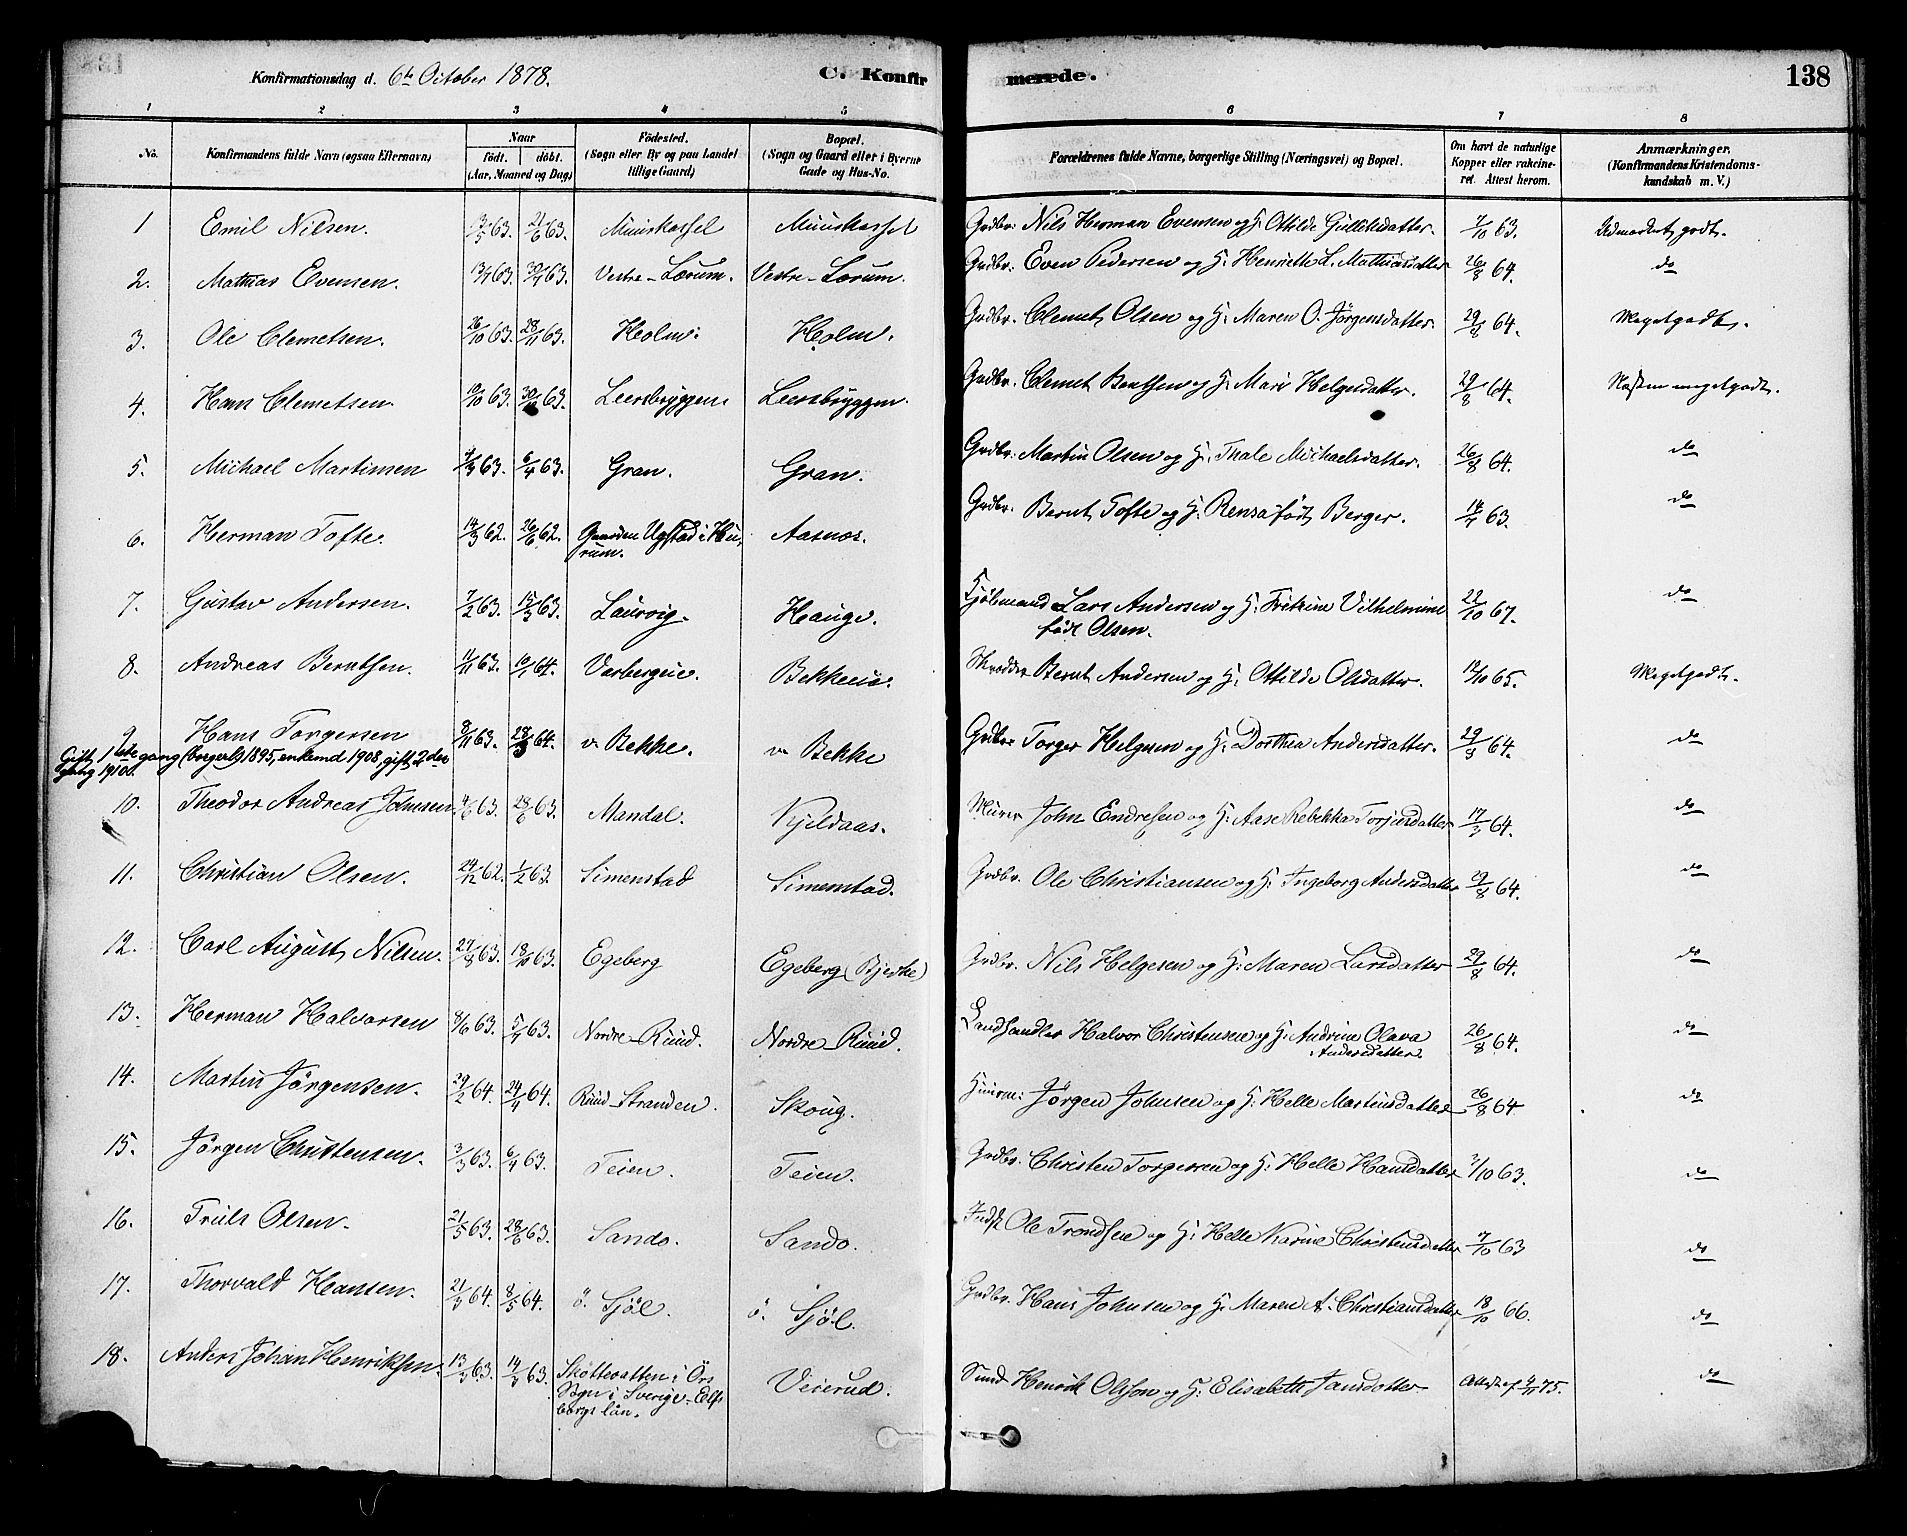 Konfirmationsdag d. 6te October 1878. C. Konfirmerede. 138
1 2 3 4 5 6 7 8
No. Konfirmandens fulde Navn (ogsaa Efternavn) Naar født. døbt. (Aar, Maaned og Dag) Fødested. (Sogn eller By og paa Landet tillige Gaard) Bopæl. (Sogn og Gaard eller i Byerne Gade og Hus-No. Forældrenes fulde Navne, borgerlige Stilling (Næringsvei) og Bopæl. Om havt de naturlige Kopper eller vakcineret. Attest herom. Anmærkninger. (Konfirmandens Kristendomskundskab m. V.)
1 Emil Nilsen. 63. 21/6 63. Grdbr. Nils Herman Evensen og H. Ottilde Gullichsdatter. 7/10 63. Udmærket godt.
2. Mathias Evensen. 13/7 63. 63. Vestre-Lørum. Vestre-Lørum. Grdbr. Even Pedersen og H. Henriette L. Mathiasdatter 26/8 64. do
3. Ole Clemetsen. 26/10 63. 28/11 63. Holm. Holm. Grdbr. Clemet Olsen og H. Maren O. Jörgensdatter. 29/8 64. Megetgodt.
4. Hans Clemetsen. 19/10 63. 63. Leersbryggen Leersbryggen. Grdbr. Clemet Bentsen og H. Mari Helgesdatter. 29/8 64. Næsten megetgodt.
5. Michael Martinsen 4/3 63. 6/4 63. Gran. Gran. Grdbr. Martin Olsen og H. Thale Michaelsdatter. 26/8 64. do
6. Herman Tofte. 14/3 62. 26/6 62. Gaarden Ugstad i Hurum. Aasnes. Grdbr. Bernt Tofte og H. Rensa født Berger. 14/7 63. do
7. Gustav Andersen. 7/2 63. 15/3 63. Laurvig. Hauge. Lars Andersen og H. Vilhelmine født Olsen. 22/10 67. do
8. Andreas Berntsen. 11/11 63. 64. Bekkeeie. Skrædder Bernt Andersen og H. Ottilde Olsdatter. 19/10 65. Megetgodt.
9 Hans Torgersen 8/11 63. 28/3 64. v. Bekke. v. Bekke Grdbr Torger Helgesen og H. Dorthea Andersdatter. 29/8 64. do
Gift 1ste gang (borgerl.) 1895, enkemd 1908, gift 2den gang 1910.
10. Theodor Andreas Johnsen. 4/6 63. 28/6 63. Mandal. Kjeldaas. Murer John Endresen og H. Aase Rebekka Torjusdatter 17/3 64. do
11. Christian Olsen. 24/12 62. 1/2 63. Simenstad Simenstad. Grdbr. Ole Christiansen og H. Ingeborg Andersdatter 29/8 64. do
12. Carl August Nilsen. 27/8 63. 18/10 63. Egeberg Egeberg (Bjerke) Grdbr. Nils Helgesen og H. Maren Larsdatter 29/8 64. do
13. Herman Halvorsen 8/6 63. 5/7 63. Nordre-Ruud. Nordre-Ruud. Landhandler Halvor Christensen og H. Andrine Olava Andersdatter. 26/8 64. do
14. Martin Jörgensen. 29/2 64. 24/4 64. Ruud-Stranden. Skoug. Huusm. Jörgen Johnsen og H. Helle Martinsdatter 26/8 64 do
15. Jörgen Christensen. 3/3 63. 6/4 63. Teien. Teien. Grdbr. Christen Torgersen og H. Helle Hansdatter 63. do
16. Truls Olsen. 21/5 63. 28/6 63. Sando. Sando. Indst Ole Trondsen og H. Helle Karine Christensdatter 7/10 63 do
17. Thorvald Hansen. 21/3 64. 8/5 64. ö. Sjöl. ö. Sjöl. Grdbr. Hans Johnsen og H. Maren A. Christiansdatter 18/10 66. do
18. Anders Johan Henriksen. 13/3 63. 14/3 63. Skottevatten i Örs Sogn i Sverige. Elfsborgs län. Veierud. Smed Henrik Olsson og H. Elisabeth Jansdotter Attest af 4/11 75. do